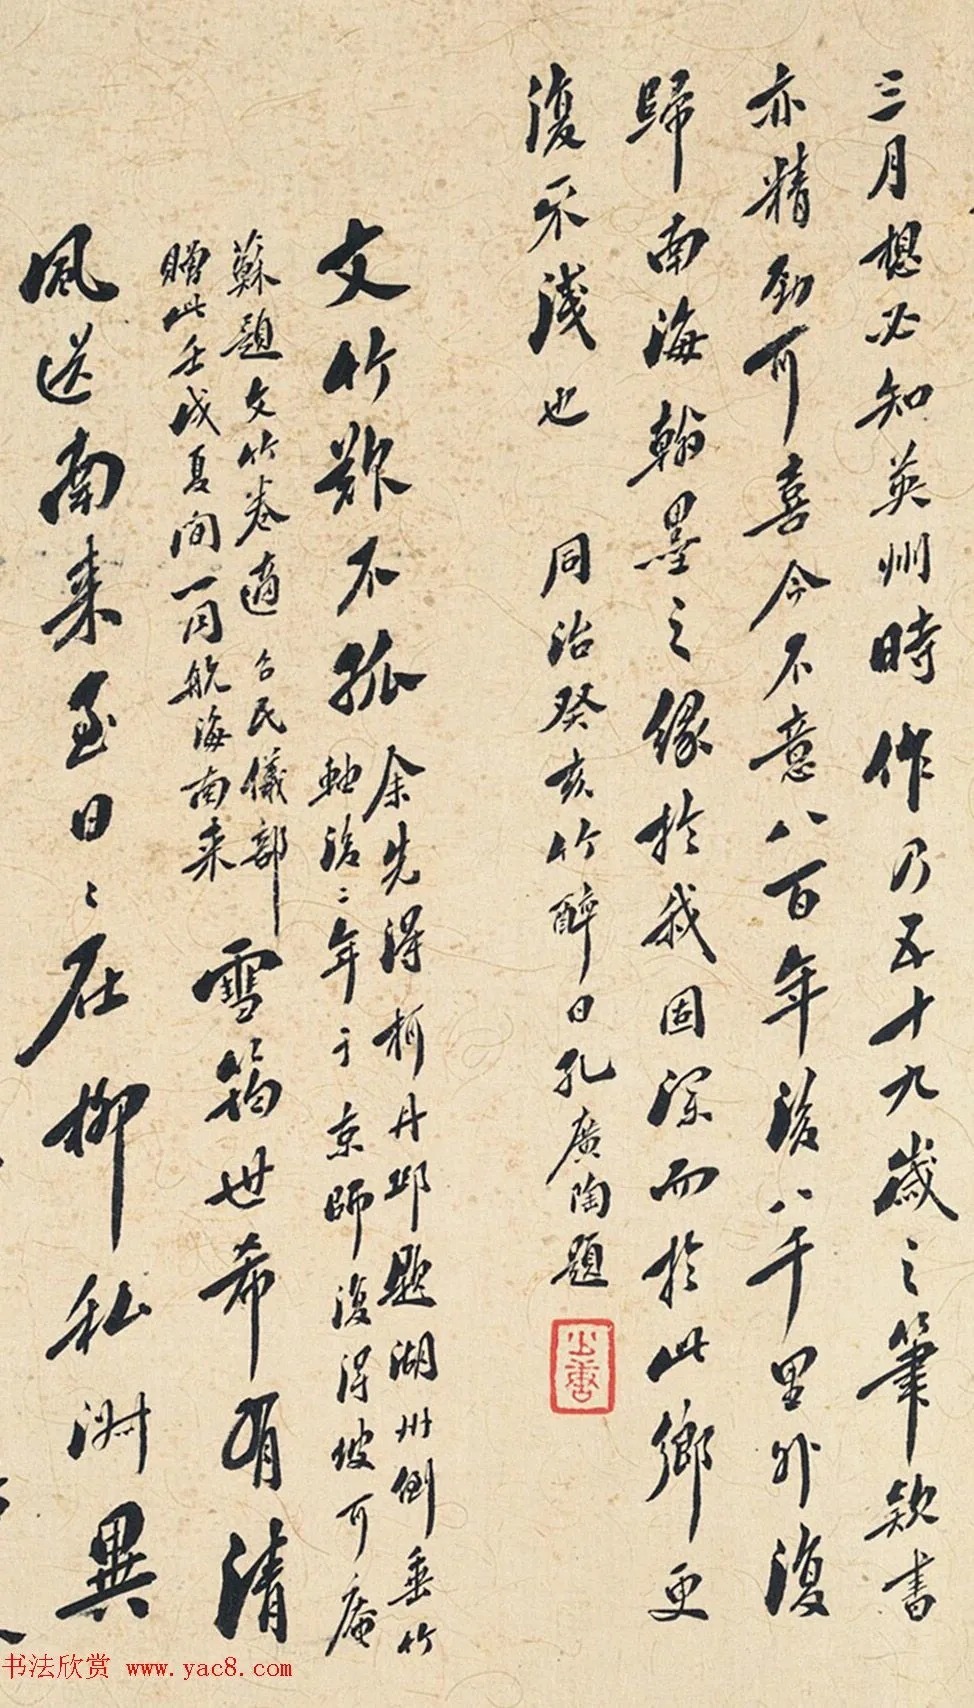 三月想必知英州時作乃五十九歲之筆款書
亦精勁可喜今不意八百年後八千里外復
歸南海翰墨之緣於我固深而於此鄉更
復不淺也
同治癸亥竹醉日孔廣陶題
文竹欺不孤
余先得柯丹邱題湖州倒垂竹
軸後二年于京師復得坡可庵
蘇題文竹卷適 台民儀部
贈此壬戌夏間一同航海南来
雪筠世希有清
風送南来至日〻在柳私淑異
书法欣赏 www.yac8.com